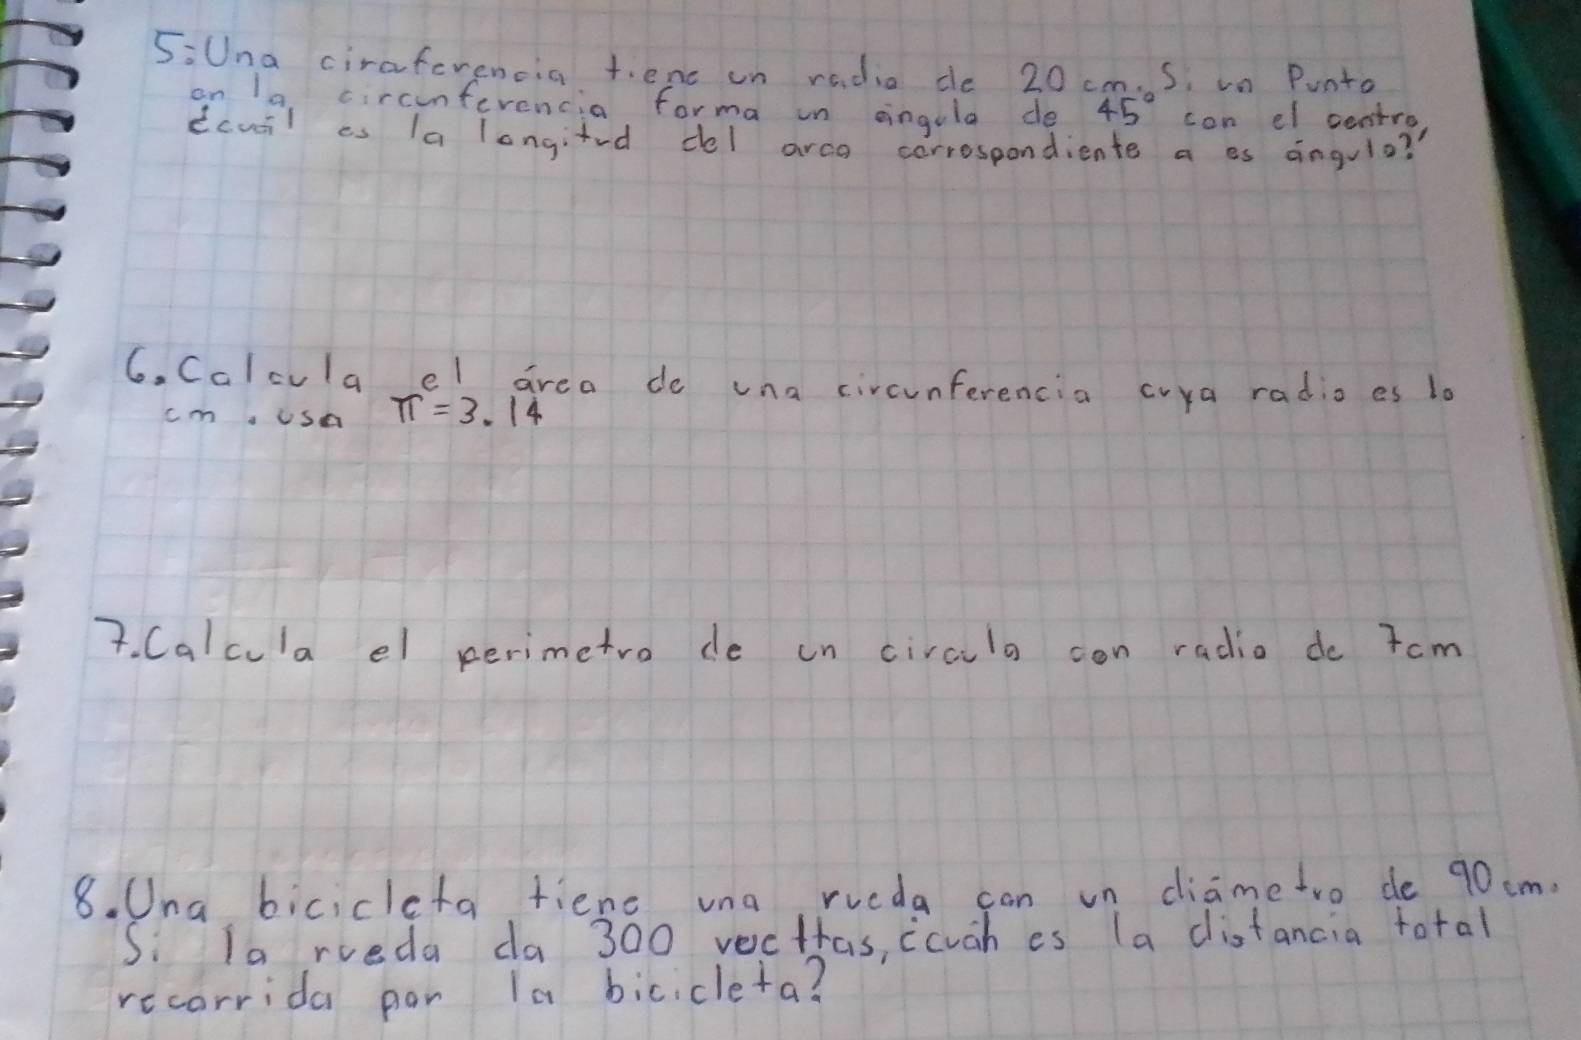 5. Una ciraferencia tiene un radio de 20 cm. Si un Punto
en la circunferencia forma un ángulo de 45° con el centro,
¿cuál es la longitud del arco correspondiente a es ángulo?
6. Calcula el área de una circunferencia cuya radio es 10
cm. usa π = 3.14
7. Calcula el perimetro de un circulo con radio de 7cm
8. Una bicicleta tiene una rueda con un diámetro de 90 cm.
Si la rueda da 300 la distancia total
recorrida por la bicicleta?